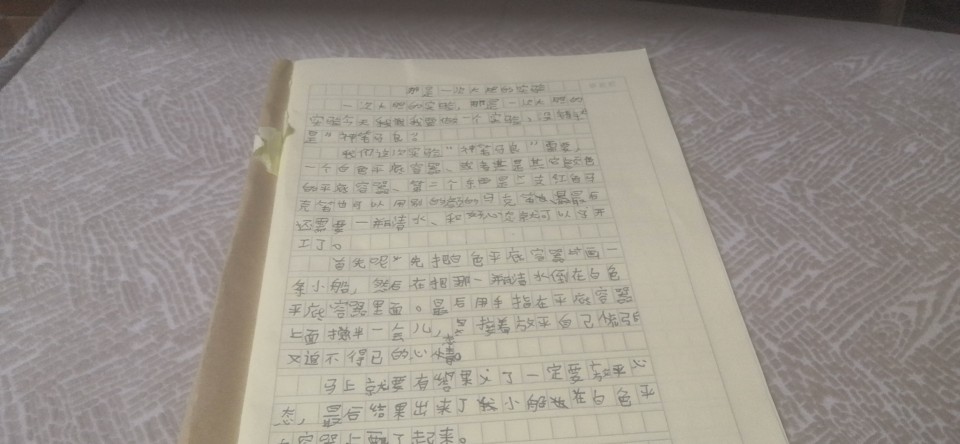 那是一次大胆的实验
一次大胆的实验，那是一次大胆的
实验今天我要做一个实验、没错就
是"神笔马良"。
我们这次实验"神笔马良"需要，
一个白色平底容器、或者是其它颜色
的平底容器、第二个东西是一支红色马
克笔也可以用别的颜色的马克笔最后
还需要一瓶清水、和好心完就可以开
工了。
首先呢先把白色平底容器上画一
条小船，然后在把那一瓶清水倒在白色
平底容器里面。最后用手指在平底容器
上面搅拌一会儿，接着放平自己紧张
又迫不得已的心情。
马上就要有结果义了一定要放平心
态，最后结果出来了我小船在白色平
容器上面了起来。